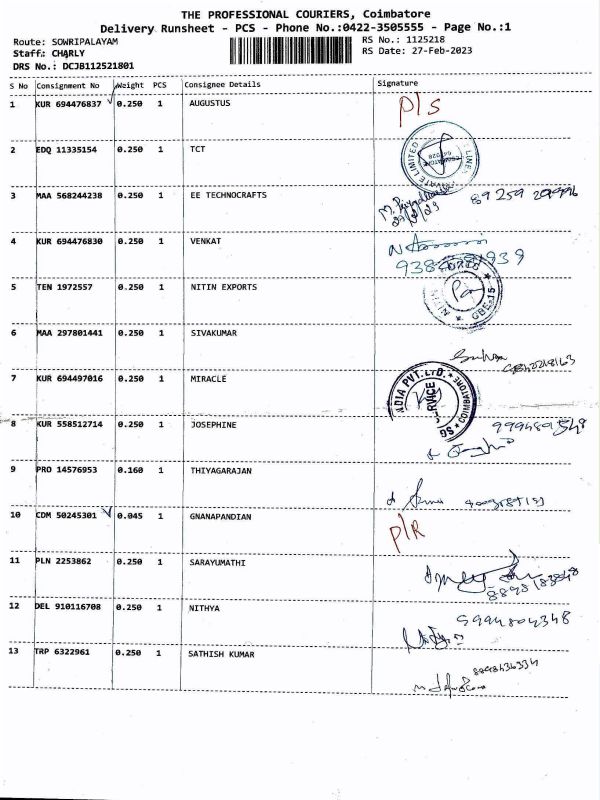 THE PROFESSIONAL COURIERS, Coimbatore
Delivery Runsheet - PCS - Phone No.:0422-3505555 - Page No.:1
Route: SOWRIPALAYAM
RS No.: 1125218
Staff: CHARLY
RS Date: 27-Feb-2023
DRS No.: DCJB112521801
S No Consignment No Weight PCS Consignee Details Signature
1 KUR 694476837 ✓ 0.250 1 AUGUSTUS P/S
2 EDQ 11335154 0.250 1 TCT
3 MAA 568244238 0.250 1 EE TECHNOCRAFTS
4 KUR 694476830 0.250 1 VENKAT
5 TEN 1972557 0.250 1 NITIN EXPORTS
6 MAA 297801441 0.250 1 SIVAKUMAR
7 KUR 694497016 0.250 1 MIRACLE
8 KUR 558512714 0.250 1 JOSEPHINE
9 PRO 14576953 0.160 1 THIYAGARAJAN
10 CDM 50245301 ✓ 0.045 1 GNANAPANDIAN P/R
11 PLN 2253862 0.250 1 SARAYUMATHI
12 DEL 910116708 0.250 1 NITHYA 9994804348
13 TRP 6322961 0.250 1 SATHISH KUMAR